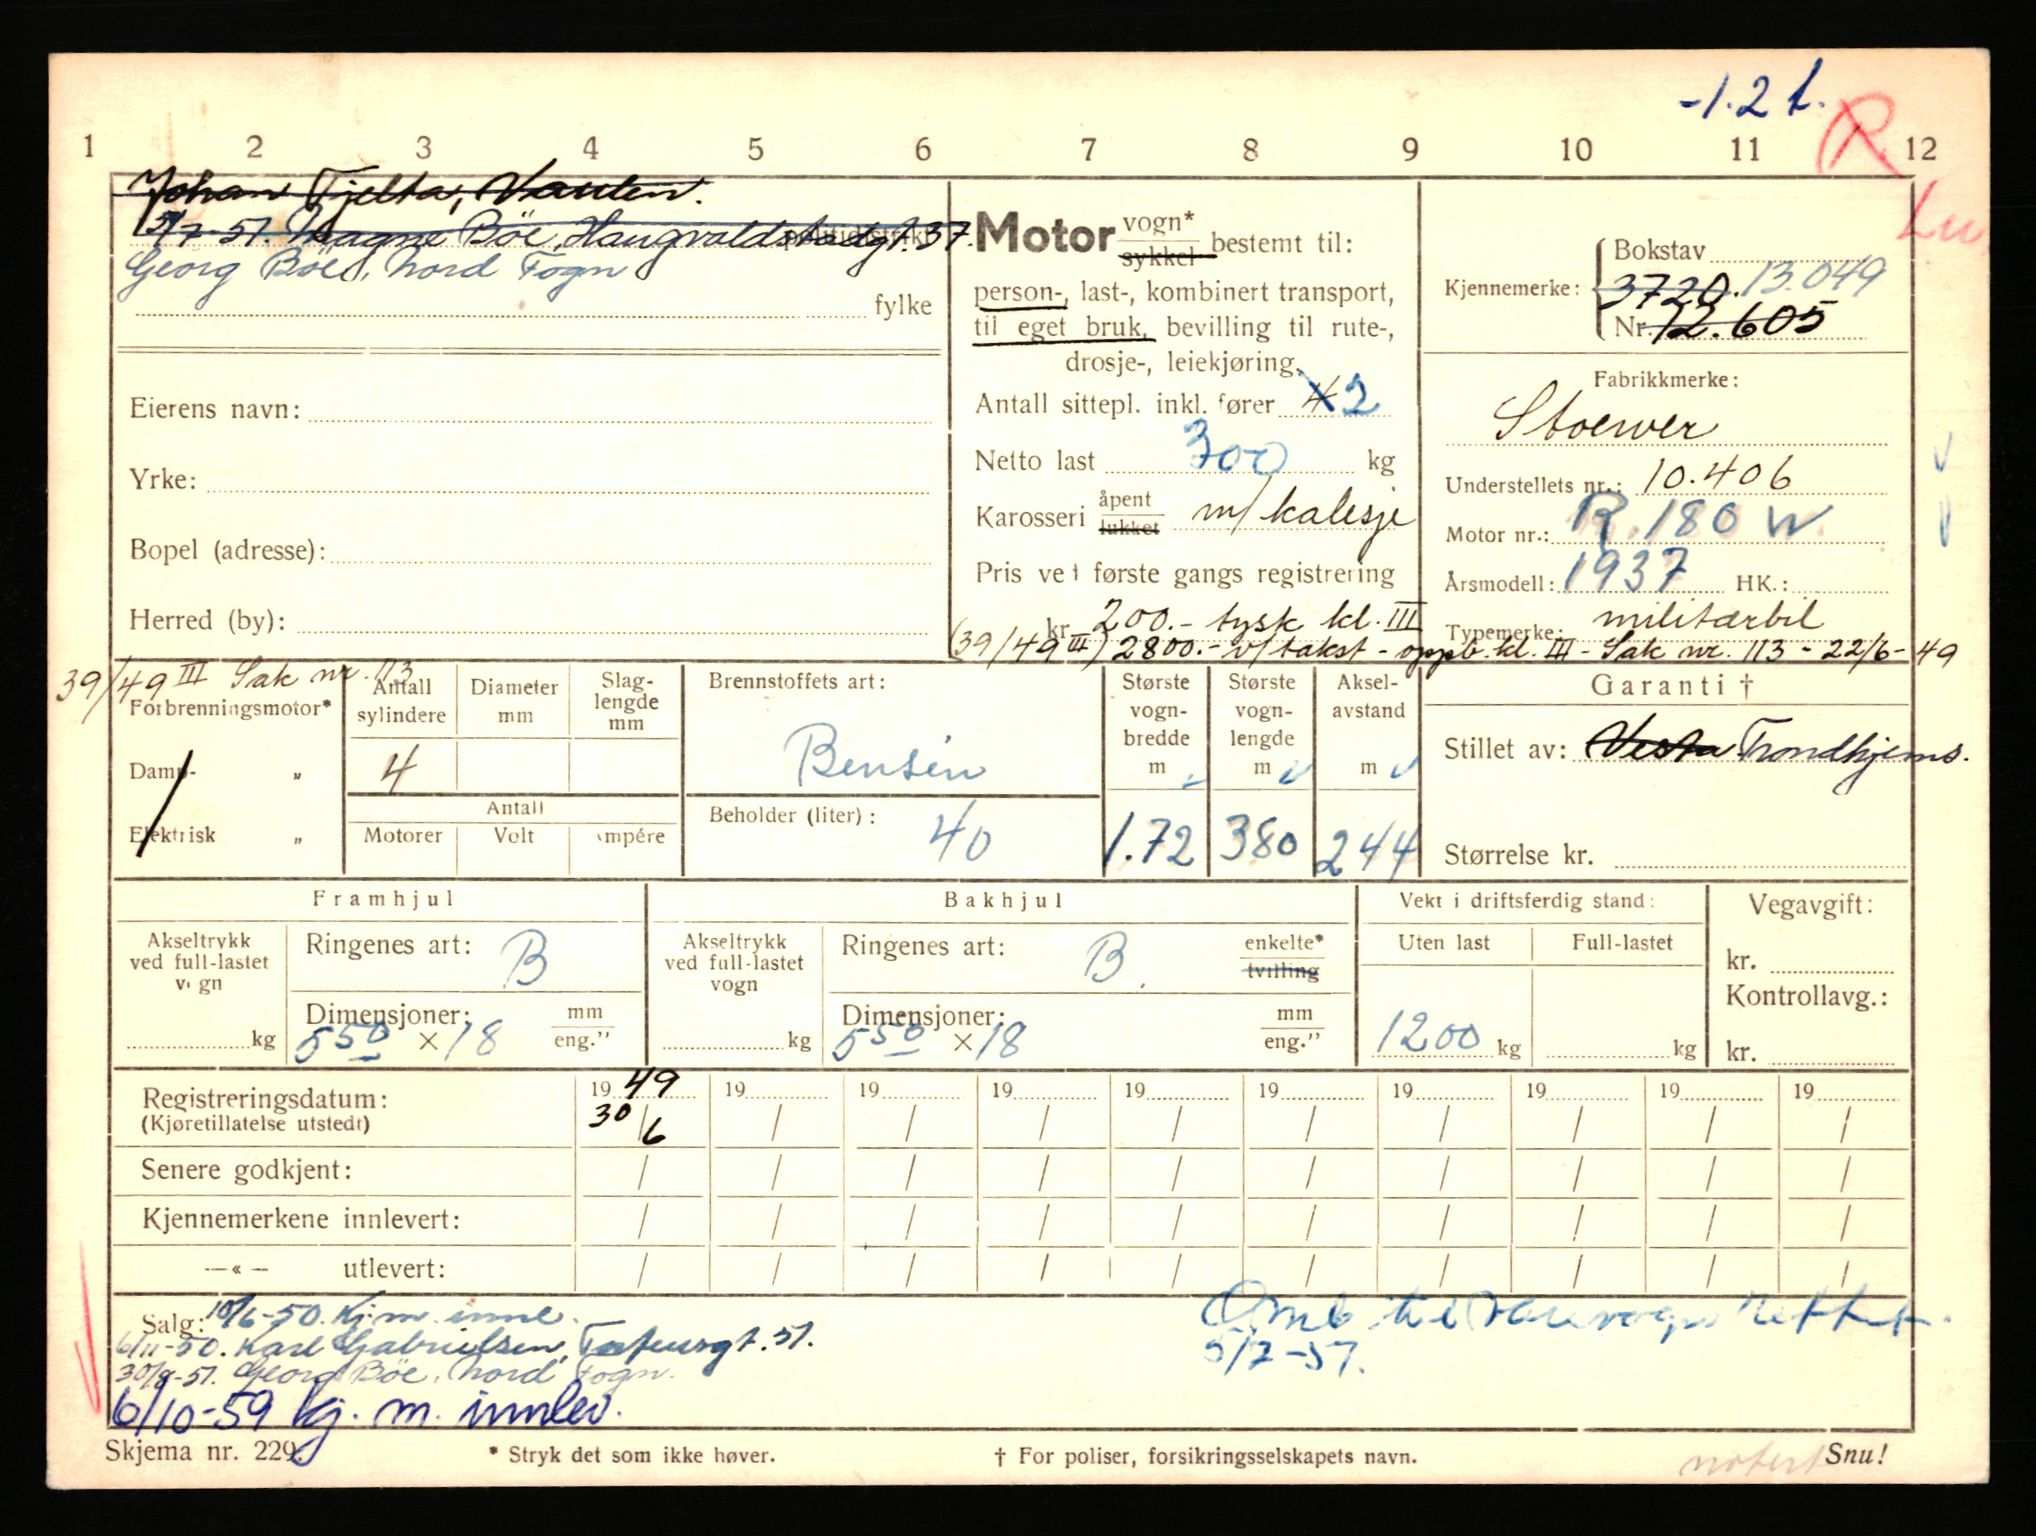 -1.2 t.
R
1 2 3 4 5 6 7 8 9 10 11 12
Johan Tjelta, Vaulen.
5/7-57. Magne Böe, Haugvaldstadgt. 37.
politidistrikt
Georg Böe, Nord Fogn
fylke
Eierens navn:
Yrke:
Bopel (adresse):
Herred (by):
Motor vogn* sykkel bestemt til:
person-, last-, kombinert transport,
til eget bruk, bevilling til rute-,
drosje-, leiekjøring.
Antall sittepl. inkl. fører 4 2
Netto last 300 kg
Karosseri åpent lukket m/kalesje
Pris ved første gangs registrering
kr. 200.- tysk kl. III
(39/49 III) 2800.- v/takst - oppb. kl. III - Sak nr. 113 - 22/6-49
Kjennemerke: Bokstav
3720. 13.049
Nr. 12.605
Fabrikkmerke:
Stoewer
Understellets nr.: 10.406
Motor nr.: R 180 W.
Årsmodell: 1937 HK.:
Typemerke: militærbil
39/49 III Sak nr. 113
Forbrenningsmotor*
Damp- „
Elektrisk „
Antall sylindere
Diameter mm
Slaglengde mm
4
Antall
Motorer Volt Ampére
Brennstoffets art:
Bensin
Beholder (liter): 40
Største vognbredde m
1.72
Største vognlengde m
380
Akselavstand m
244
Garanti †
Stillet av: Vesta Trondhjems.
Størrelse kr.
Framhjul
Akseltrykk ved full-lastet vogn
kg
Ringenes art: B
Dimensjoner: 550 × 18 mm eng."
Bakhjul
Akseltrykk ved full-lastet vogn
kg
Ringenes art: B. enkelte* tvilling
Dimensjoner: 550 × 18 mm eng."
Vekt i driftsferdig stand:
Uten last Full-lastet
1200 kg kg
Vegavgift:
kr.
Kontrollavg.:
kr.
Registreringsdatum: 19 49 19 19 19 19 19 19 19 19 19
(Kjøretillatelse utstedt) 30/6 / / / / / / / / /
Senere godkjent: / / / / / / / / / /
Kjennemerkene innlevert: / / / / / / / / / /
—«— utlevert: / / / / / / / / / /
Salg: 10/6-50. Kj.m. innl.
6/11-50. Karl Gabrielsen, 51.
30/8-57. Georg Böe, Nord Fogn.
6/10-59 kj. m. innlev.
Omb. til varevogn rettet.
5/7-57.
Skjema nr. 229.
* Stryk det som ikke høver.
† For poliser, forsikringsselskapets navn.
notert
Snu!